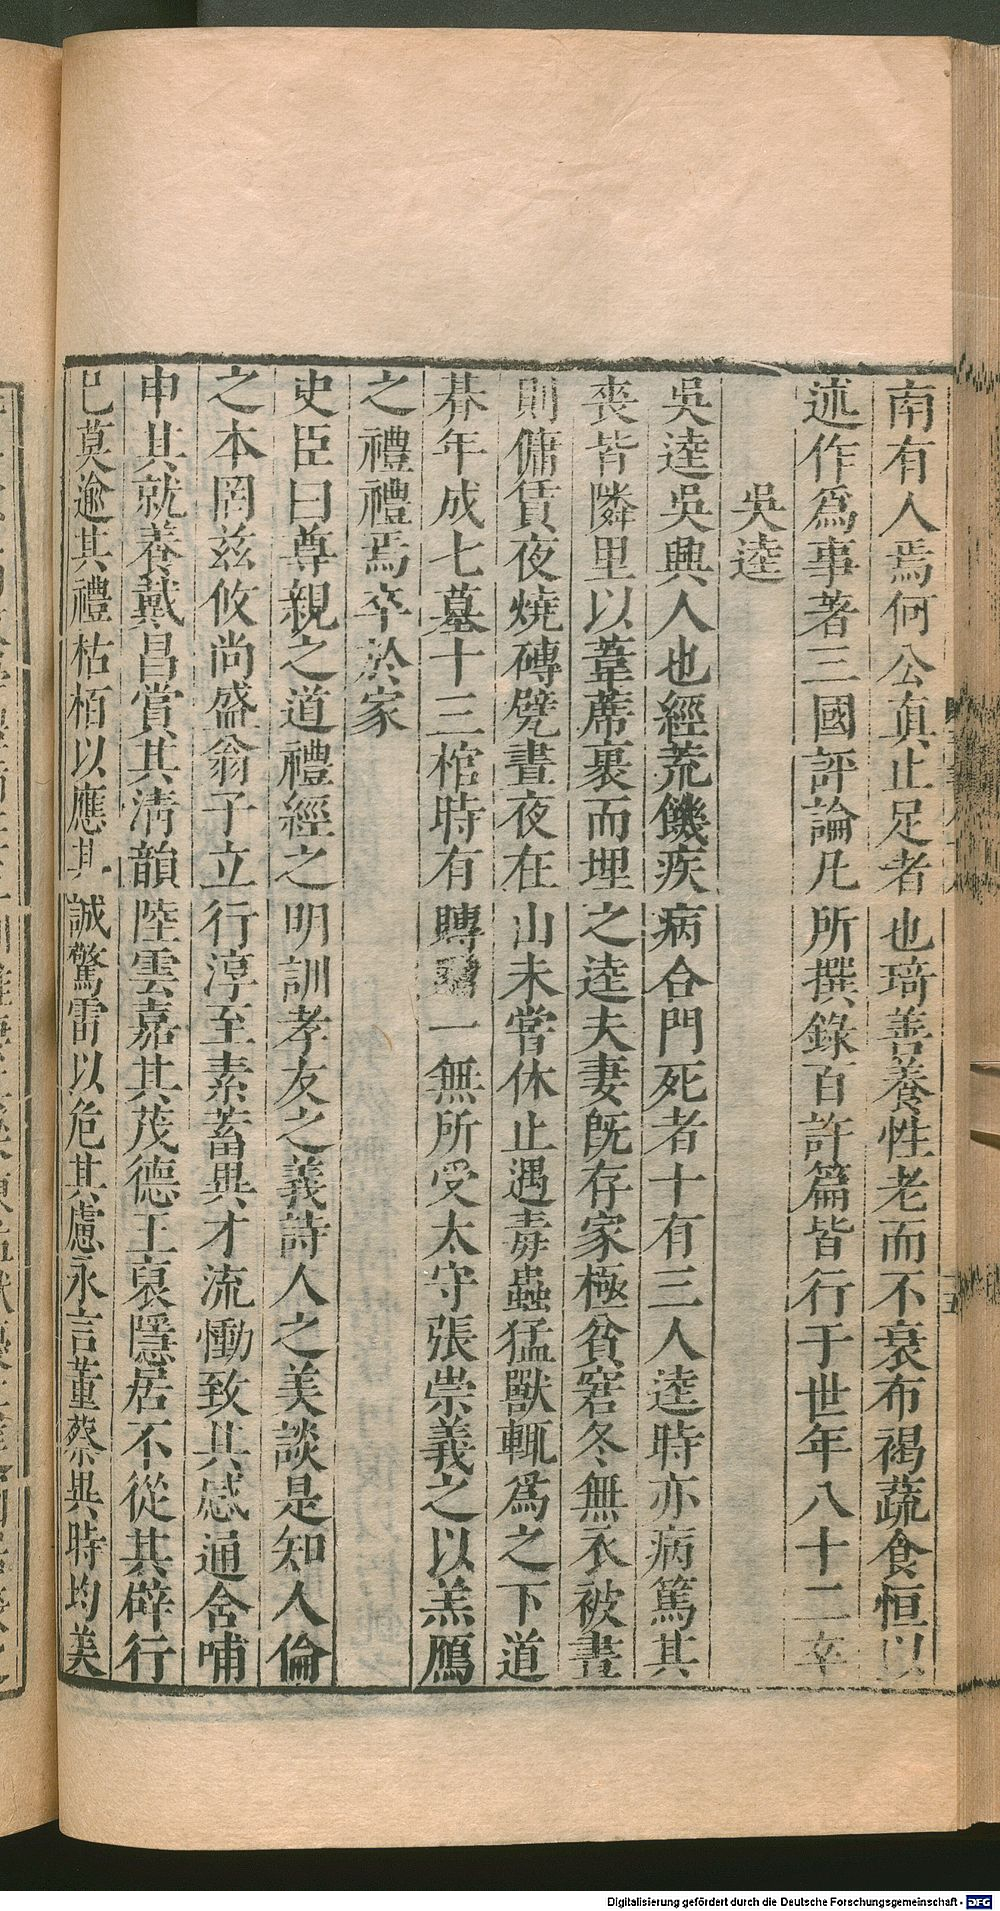 南有人焉何公真止足者也琦善養性老而不衰布褐蔬食恒以
述作爲事著三國評論凡所撰錄百許篇皆行于世年八十二卒
吳逵
吳逵吳興人也經荒饑疾病合門死者十有三人逵時亦病篤其
喪皆隣里以葦蓆裹而埋之逵夫妻旣存家極貧窘冬無衣被晝
則傭賃夜燒磚甓晝夜在山未嘗休止遇毒蟲猛獸輒爲之下道
朞年成七墓十三棺時有賻一無所受太守張崇義之以羔鴈
之禮禮焉卒於家
史臣曰尊親之道禮經之明訓孝友之義詩人之美談是知人倫
之本罔茲攸尚盛翁子立行淳至素蓄異才流慟致其感通含哺
申其就養戴昌賞其清韻陸雲嘉其茂德王裒隱居不從其辟行
己莫逾其禮枯栢以應其誠驚雷以危其慮永言董蔡異時均美
Digitalisierung gefördert durch die Deutsche Forschungsgemeinschaft - DFG